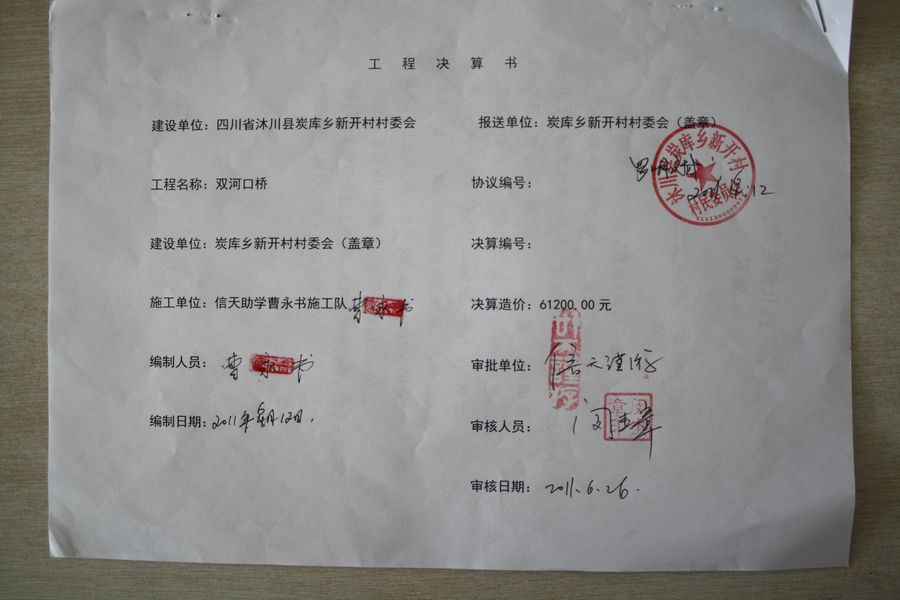 工程决算书
建设单位：四川省沐川县炭库乡新开村村委会
报送单位：炭库乡新开村村委会（盖章）
炭库乡新开村
村民委员会
工程名称：双河口桥
协议编号：
建设单位：炭库乡新开村村委会（盖章）
决算编号：
施工单位：信天助学曹永书施工队 曹永书
决算造价：61200.00元
编制人员：曹永书
审批单位：信天谨行
编制日期：2011年6月12日.
审核人员：
审核日期：2011.6.26.